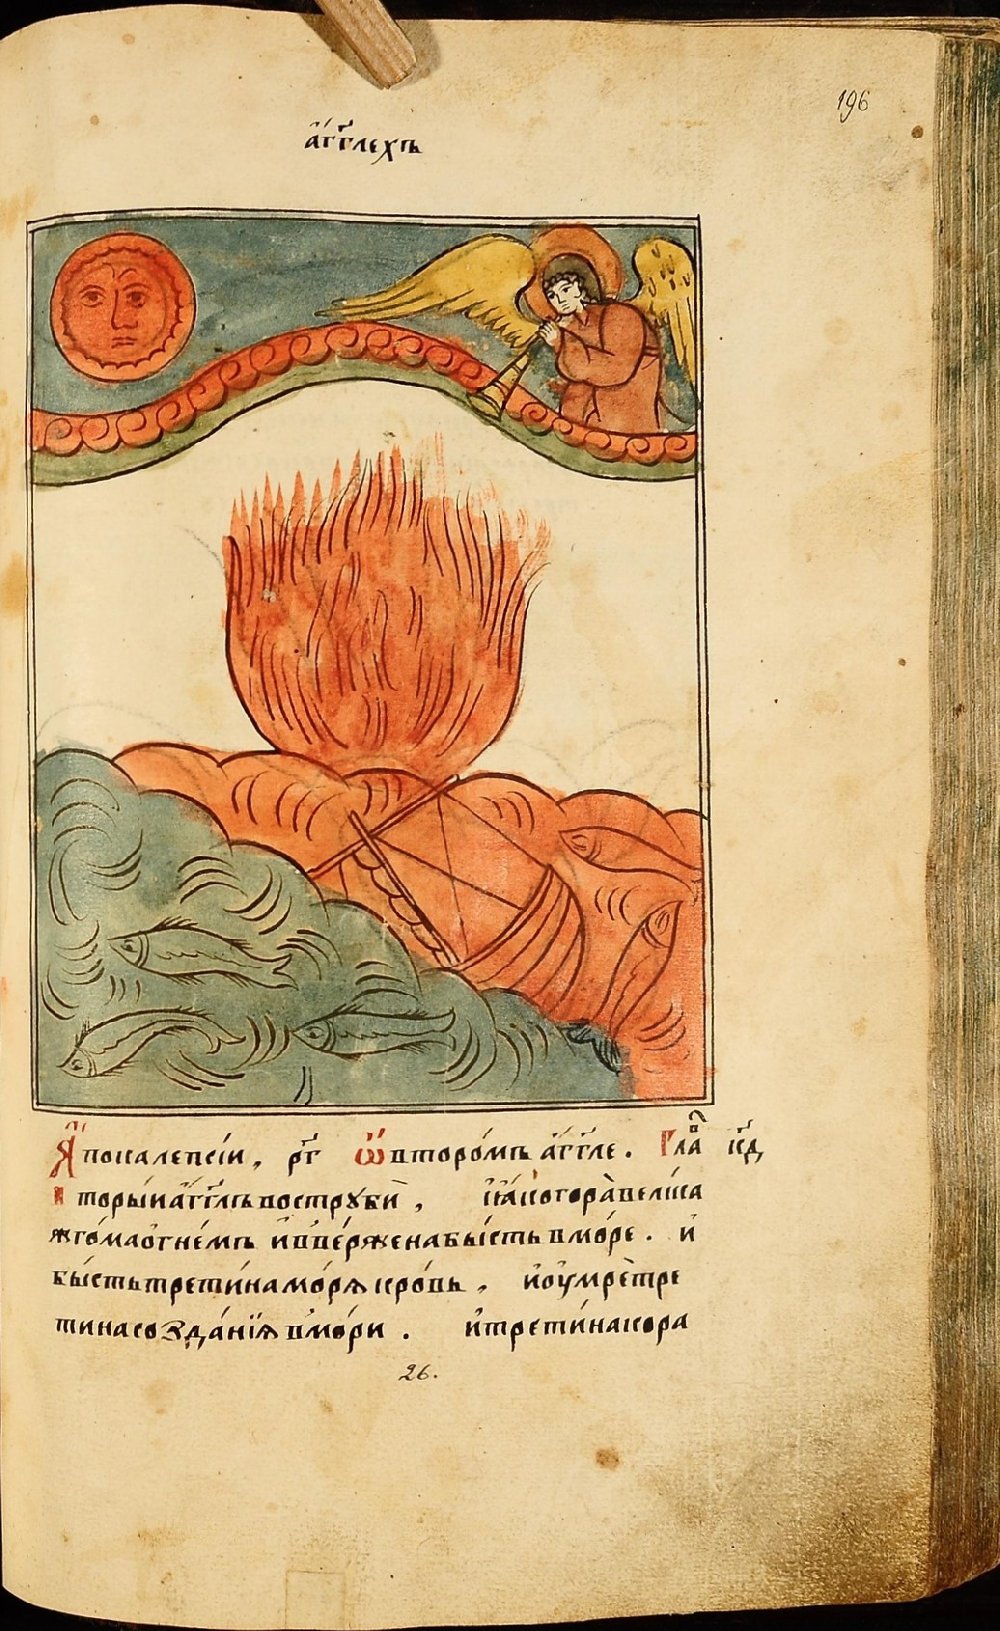 196
а҆́гг҃лехъ
А҆покалепсі́и, рг҃ ѡ҆ второ́мъ а҆́гг҃ле. Глав҃ к҃д
Вторы́й а҆́гг҃лъ вострꙋбѝ, ꙗ҆́ко гора̀ велі́ка
жго́ма ѻ҆гне́мъ и҆ вве́ржена бы́сть в мо́ре. и҆
бы́сть трети́на мо́рѧ кро́вь, и҆ ᲂу҆мрѐ тре
тина созда́нїѧ в мо́ри. и҆ трети́на кора
26.